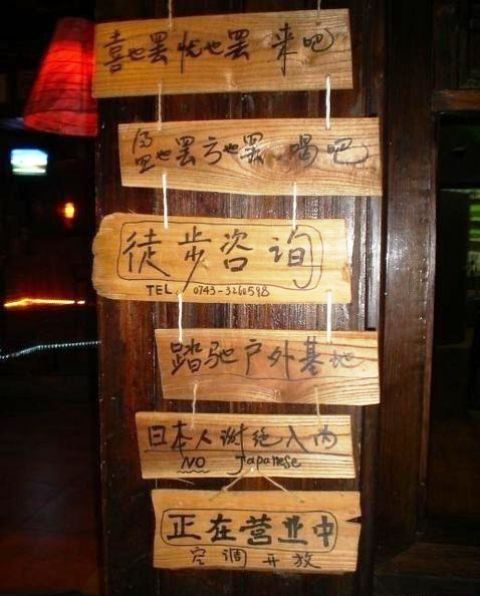 喜也罢忧也罢 来吧
也罢 也罢 喝吧
徒步咨询
TEL. 0743-3260598
踏驰户外基地
日本人谢绝入内
NO Japanese
正在营业中
空调开放